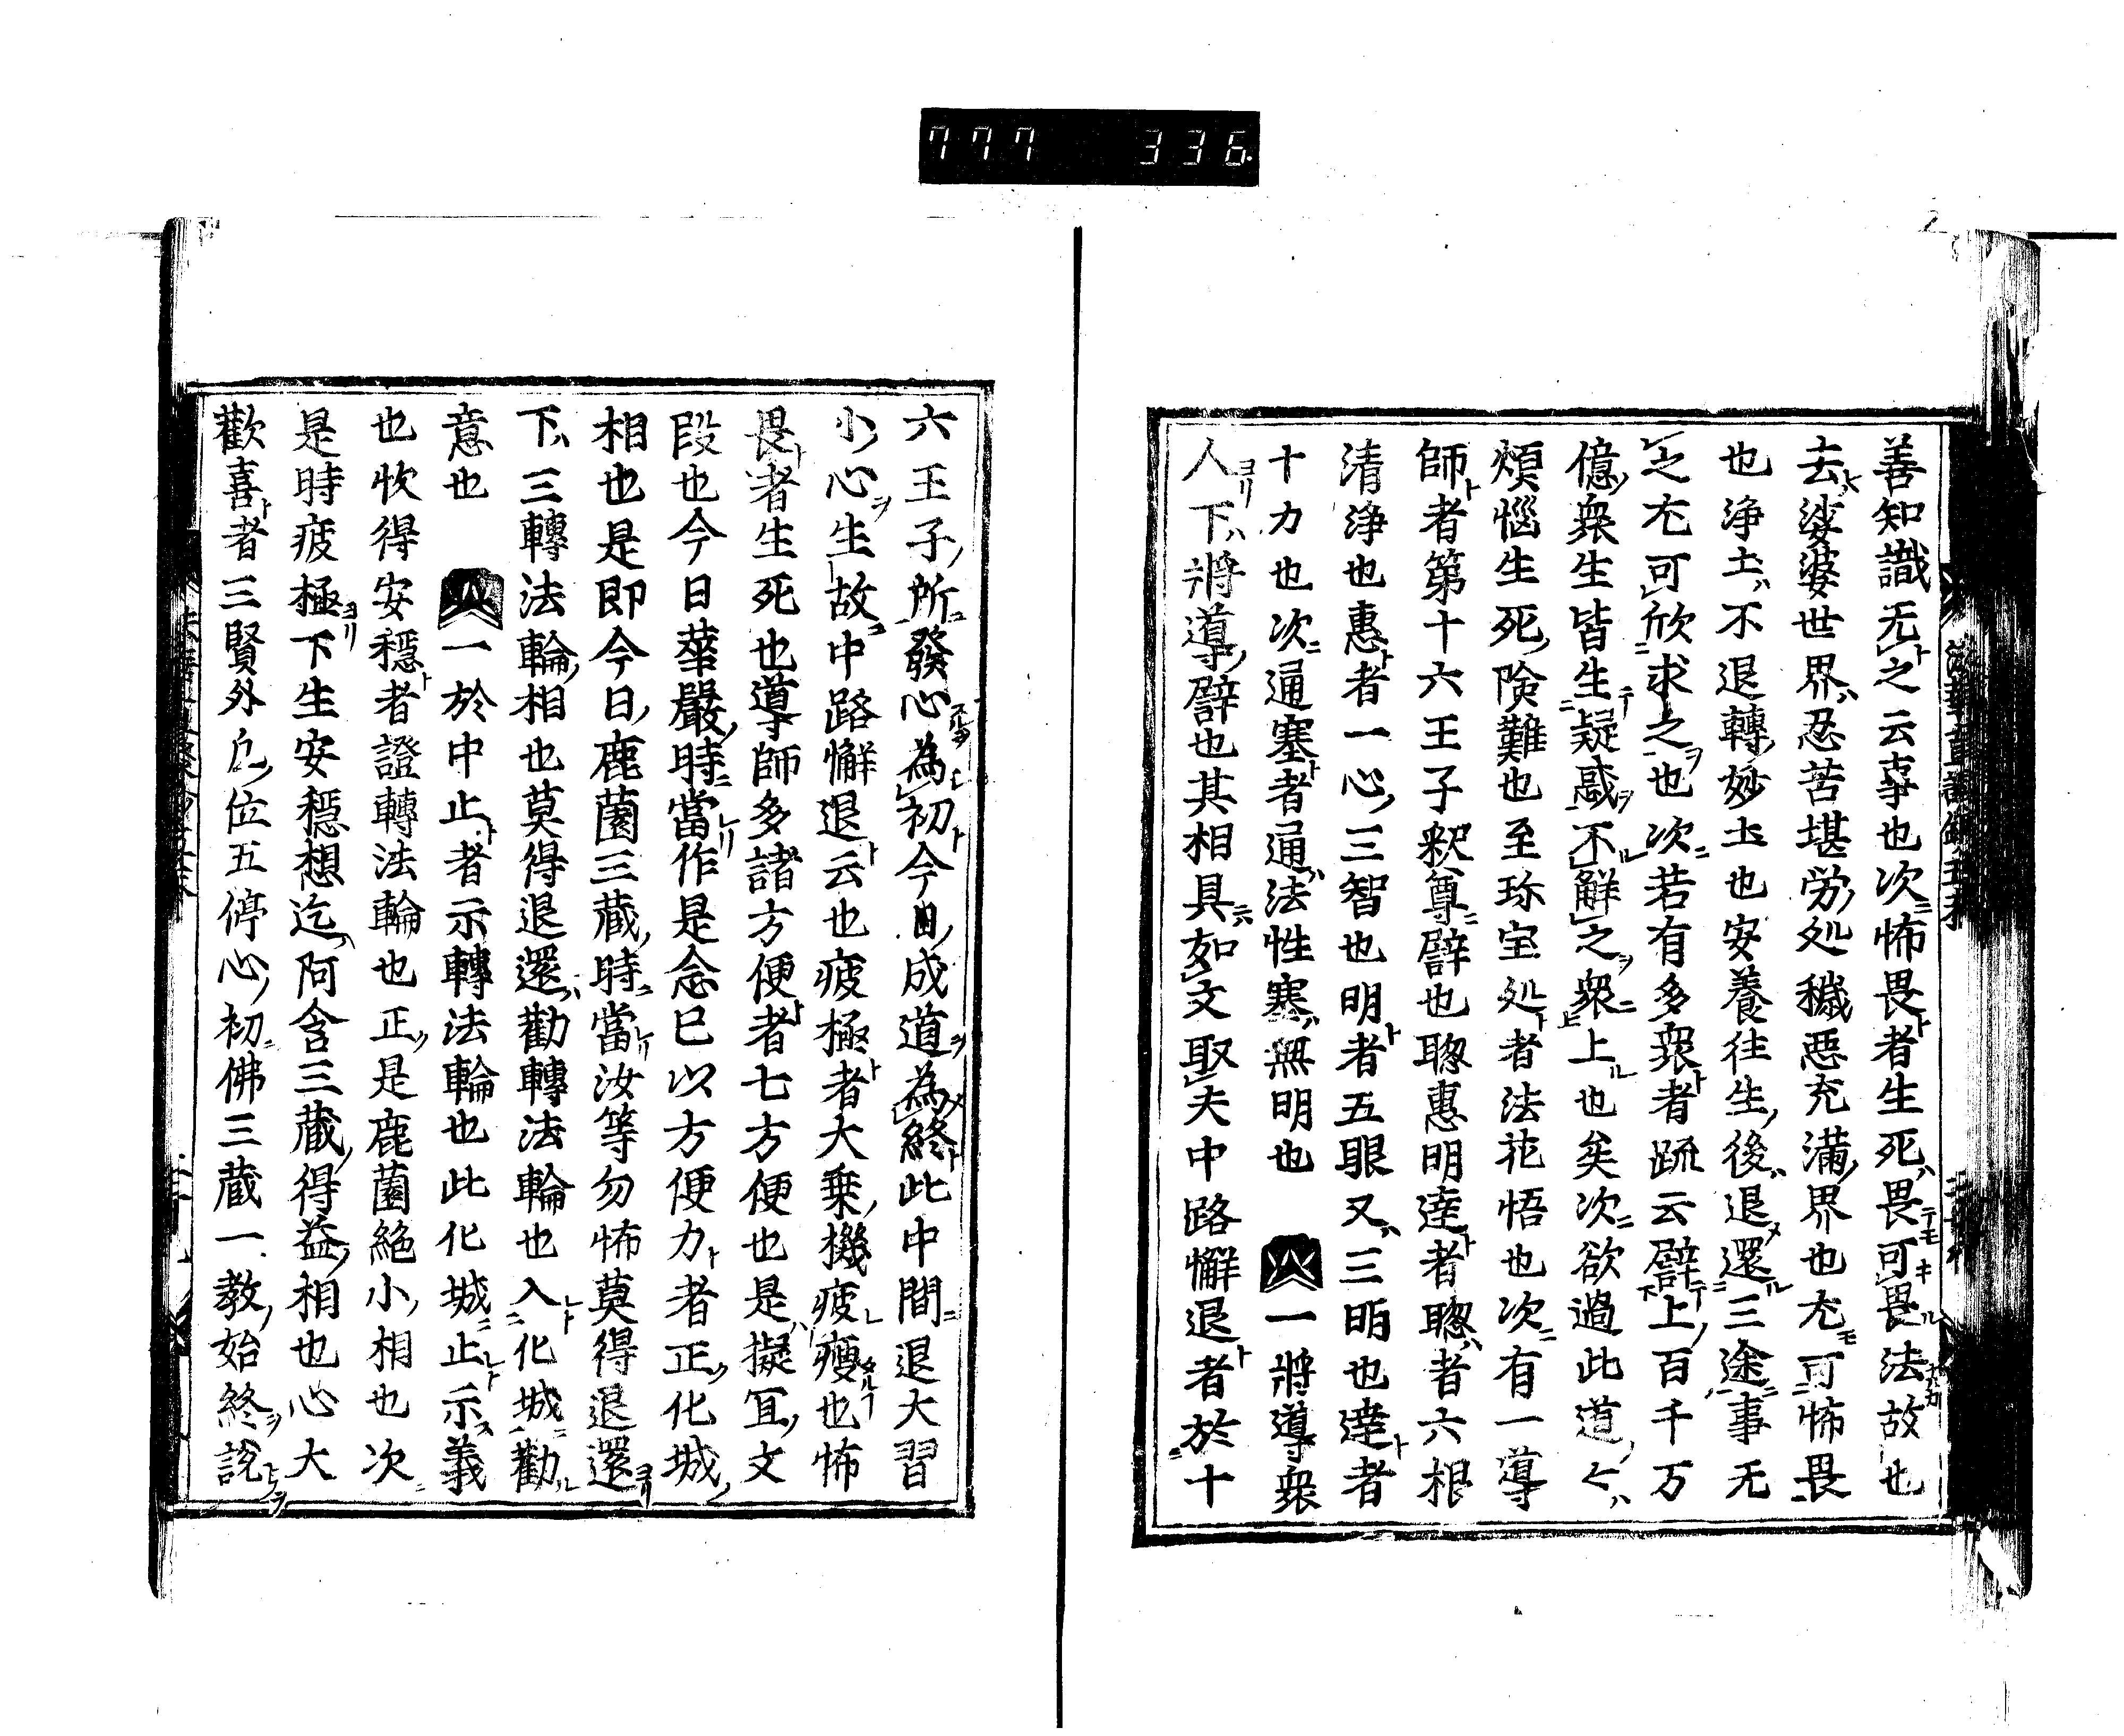 777 336
善知識无之云事也次怖畏者生死畏可畏法故也
去娑婆世界忍苦堪労処穢悪充満界也尤可怖畏
也浄土不退轉妙土也安養往生後退還三途事无
之尤可欣求之也次若有多衆者疏云譬上百千万
億衆生皆生疑惑不解之衆上也矣次欲過此道々
煩惱生死険難也至珎宝処者法花悟也次有一導
師者第十六王子釈尊譬也聡惠明達者聡者六根
清浄也惠者一心三智也明者五眼又三明也達者
十力也次通塞者通法性塞無明也 一將導衆
人下將導譬也其相具如文取夫中路懈退者於十
六王子所發心為初今日成道為終此中間退大習
小心生故中路懈退云也疲極者大乗機疲瘦也怖
畏者生死也導師多諸方便者七方便也是擬冝文
段也今日華嚴時當作是念已以方便力者正化城
相也是即今日鹿薗三蔵時當汝等勿怖莫得退還
下三轉法輪相也莫得退還勸轉法輪也入化城勸
意也 一於中止者示轉法輪也此化城止示義
也快得安穏者證轉法輪也正是鹿薗絶小相也次
是時疲極下生安穏想迄阿含三蔵得益相也心大
歡喜者三賢外凢位五停心初佛三蔵一教始終説